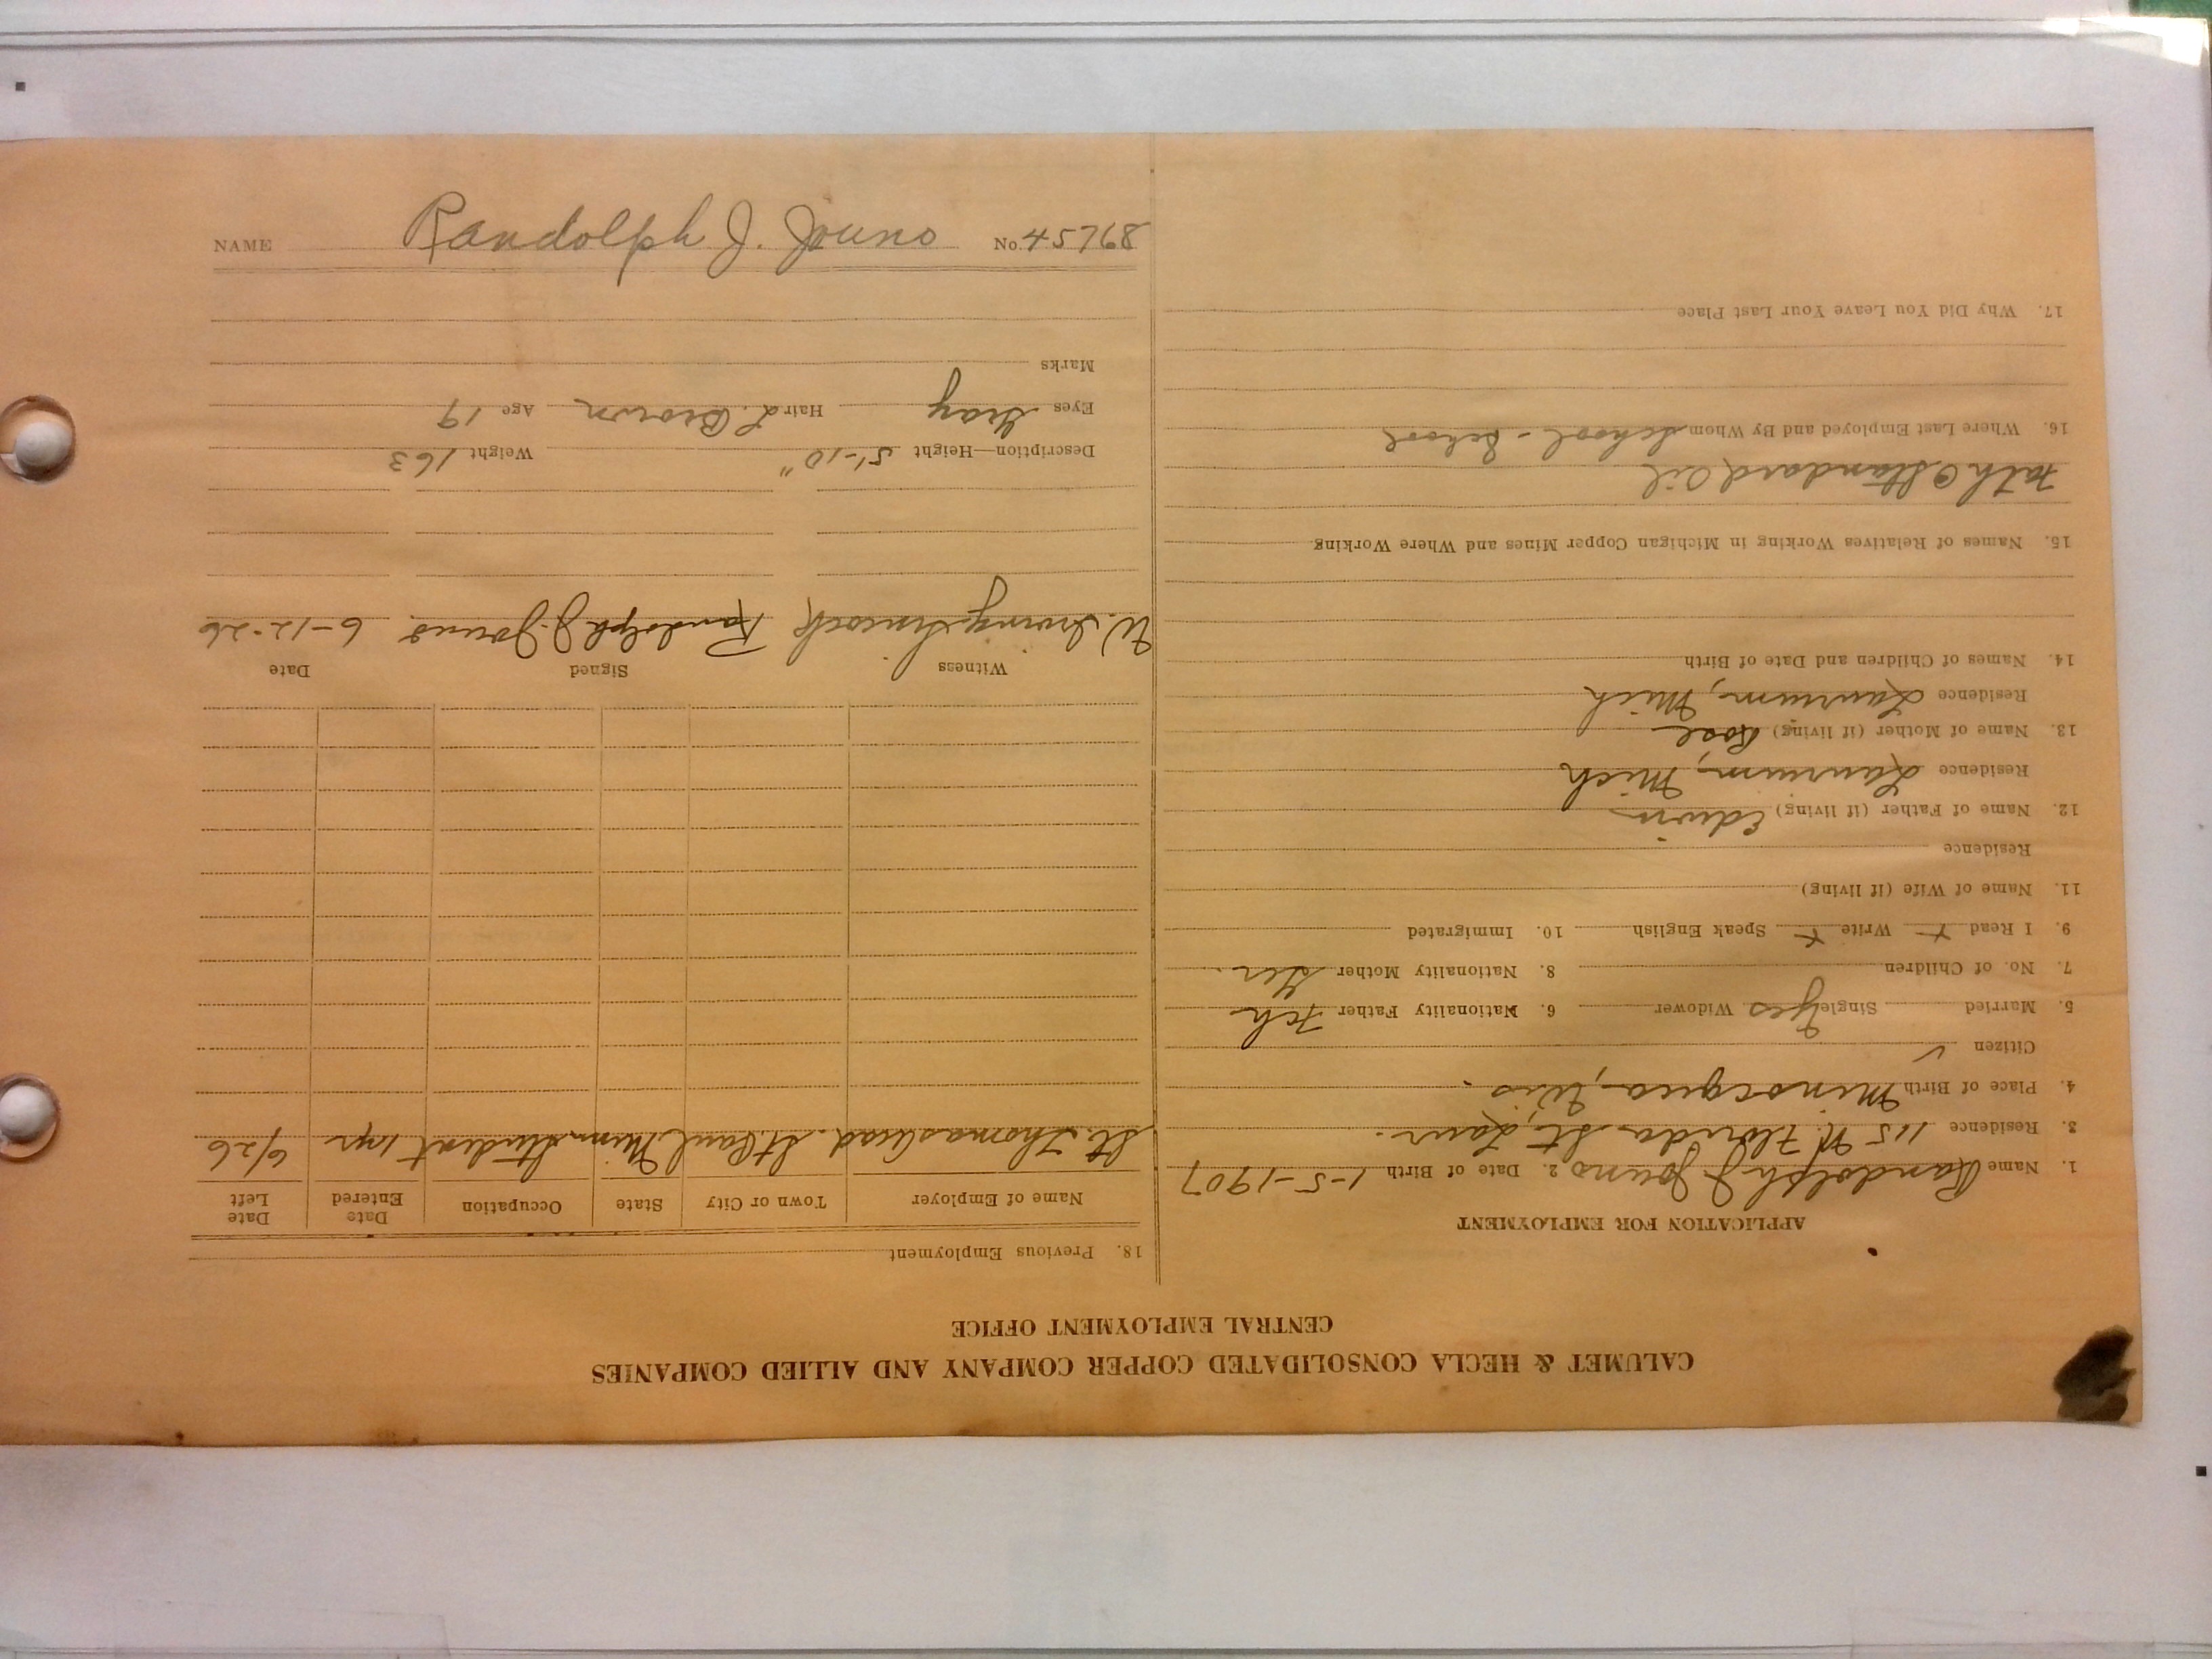 CALUMET & HECLA CONSOLIDATED COPPER COMPANY AND ALLIED COMPANIES
CENTRAL EMPLOYMENT OFFICE
APPLICATION FOR EMPLOYMENT
1. Name Randolph J Jouno 2. Date of Birth 1-5-1907
3. Residence 115 N. Florida St. Laur.
4. Place of Birth Minocqua, Wis.
Citizen ✓
5. Married Single yes Widower 6. Nationality Father Fch
7. No. of Children 8. Nationality Mother Ger.
9. I Read x Write x Speak English 10. Immigrated
11. Name of Wife (if living)
Residence
12. Name of Father (if living) Edwin
Residence Laurium, Mich
13. Name of Mother (if living) Rose
Residence Laurium, Mich
14. Names of Children and Date of Birth
15. Names of Relatives Working in Michigan Copper Mines and Where Working
Fath @ Standard Oil
16. Where Last Employed and By Whom School - School
17. Why Did You Leave Your Last Place
18. Previous Employment
Name of Employer Town or City State Occupation Date Entered Date Left
St. Thomas Acad. St. Paul Minn. Student 1 yr 6/26
Witness Signed Date
W. Irving Simcock Randolph J. Jouno 6-12-26
Description—Height 5'-10" Weight 163
Eyes Gray Hair L. Brown Age 19
Marks
NAME Randolph J. Jouno No. 45768